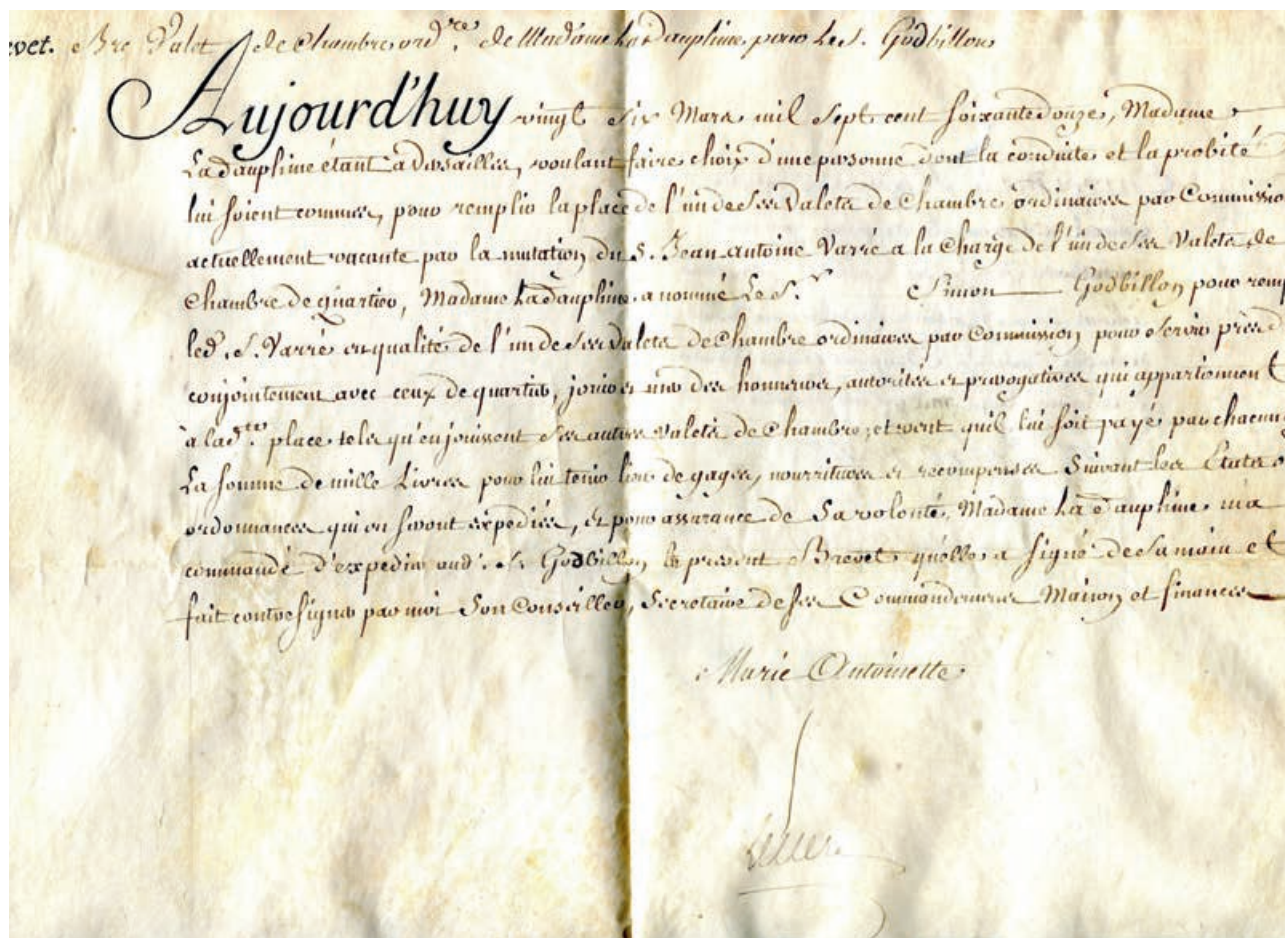 evet. De Valet de Chambre ord.re de Madame La Dauphine, pour le S. Godbillon
Aujourd'huy vingt six Mars mil sept cent soixante douze, Madame
La Dauphine étant a Versailles, voulant faire choix d'une personne dont la conduite et la probité
lui soient connues, pour remplir la place de l'un de ses Valets de Chambre ordinaires par Commissio
actuellement vacante par la mutation du S. Jean antoine Varré a la Charge de l'un de ses Valets de
Chambre de quartier, Madame La Dauphine a nommé Le S.r Simon Godbillon pour remp
led. S. Varré en qualité de l'un de ses Valets de Chambre ordinaires par Commission, pour servir près d
conjointement avec ceux de quartier, jouir et user des honneurs, autorités et prerogatives qui appartiennent
à lad.te place tels qu'en jouissent ses autres Valets de Chambre; et veut qu'il lui soit payé par chacun
La somme de mille Livres pour lui tenir lieu de gages, nourritures et recompenses Suivant les Etats
ordonnances qui en seront expediés, et pour assurance de Sa volonté, Madame La Dauphine m'a
commandé d'expedier aud. S. Godbillon le present Brevet qu'elle a signé de sa main et
fait contresigner par moi Son Conseiller, Secretaire de ses Commandemens Maison et finances
Marie Antoinette